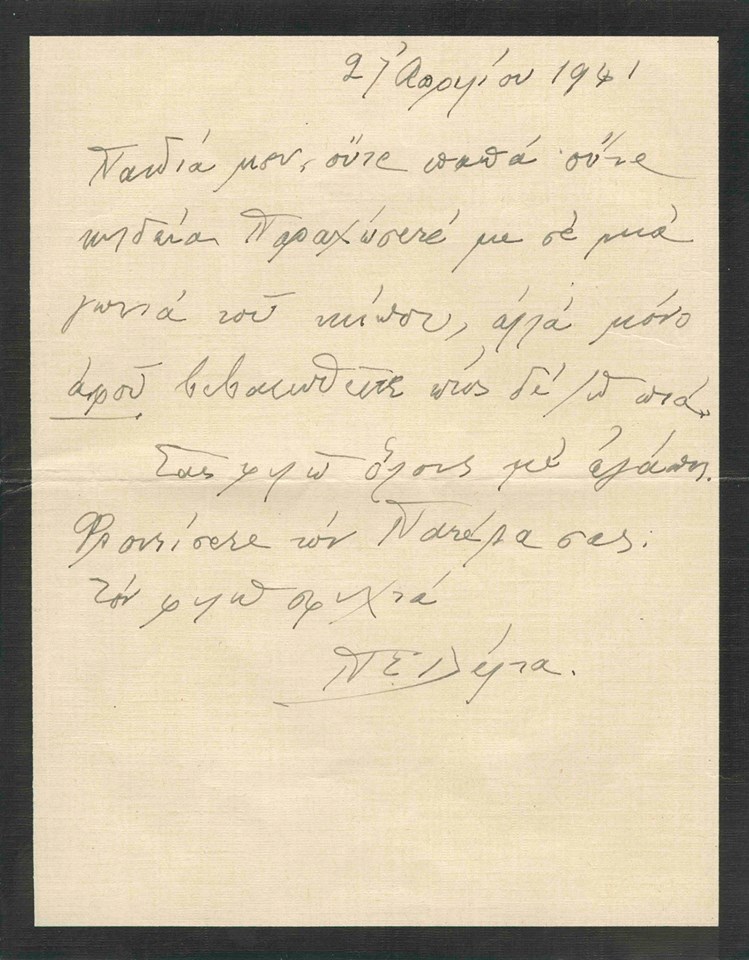 27 Απριλίου 1941
Παιδιά μου, οὔτε παπά οὔτε
κηδεία. Παραχώσετέ με σέ μιά
γωνιά τοῦ κήπου, ἀλλά μόνο
ἀφοῦ βεβαιωθεῖτε πώς δέ ζῶ πιά.
Σας φιλῶ ὅλους μέ ἀγάπη.
Φροντίσετε τόν Πατέρα σας.
Τόν φιλῶ σφιχτά
Π Σ Δέλτα.